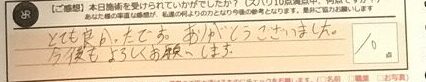 【ご感想】本日施術を受けられていかがでしたか？（ズバリ10点満点中、何点ですか？）
あなた様の率直な感想が、私達の何よりの力となり今後の参考となります。是非ご協力お願いします
とても良かったです。ありがとうございました。
今後もよろしくお願いします。
10点